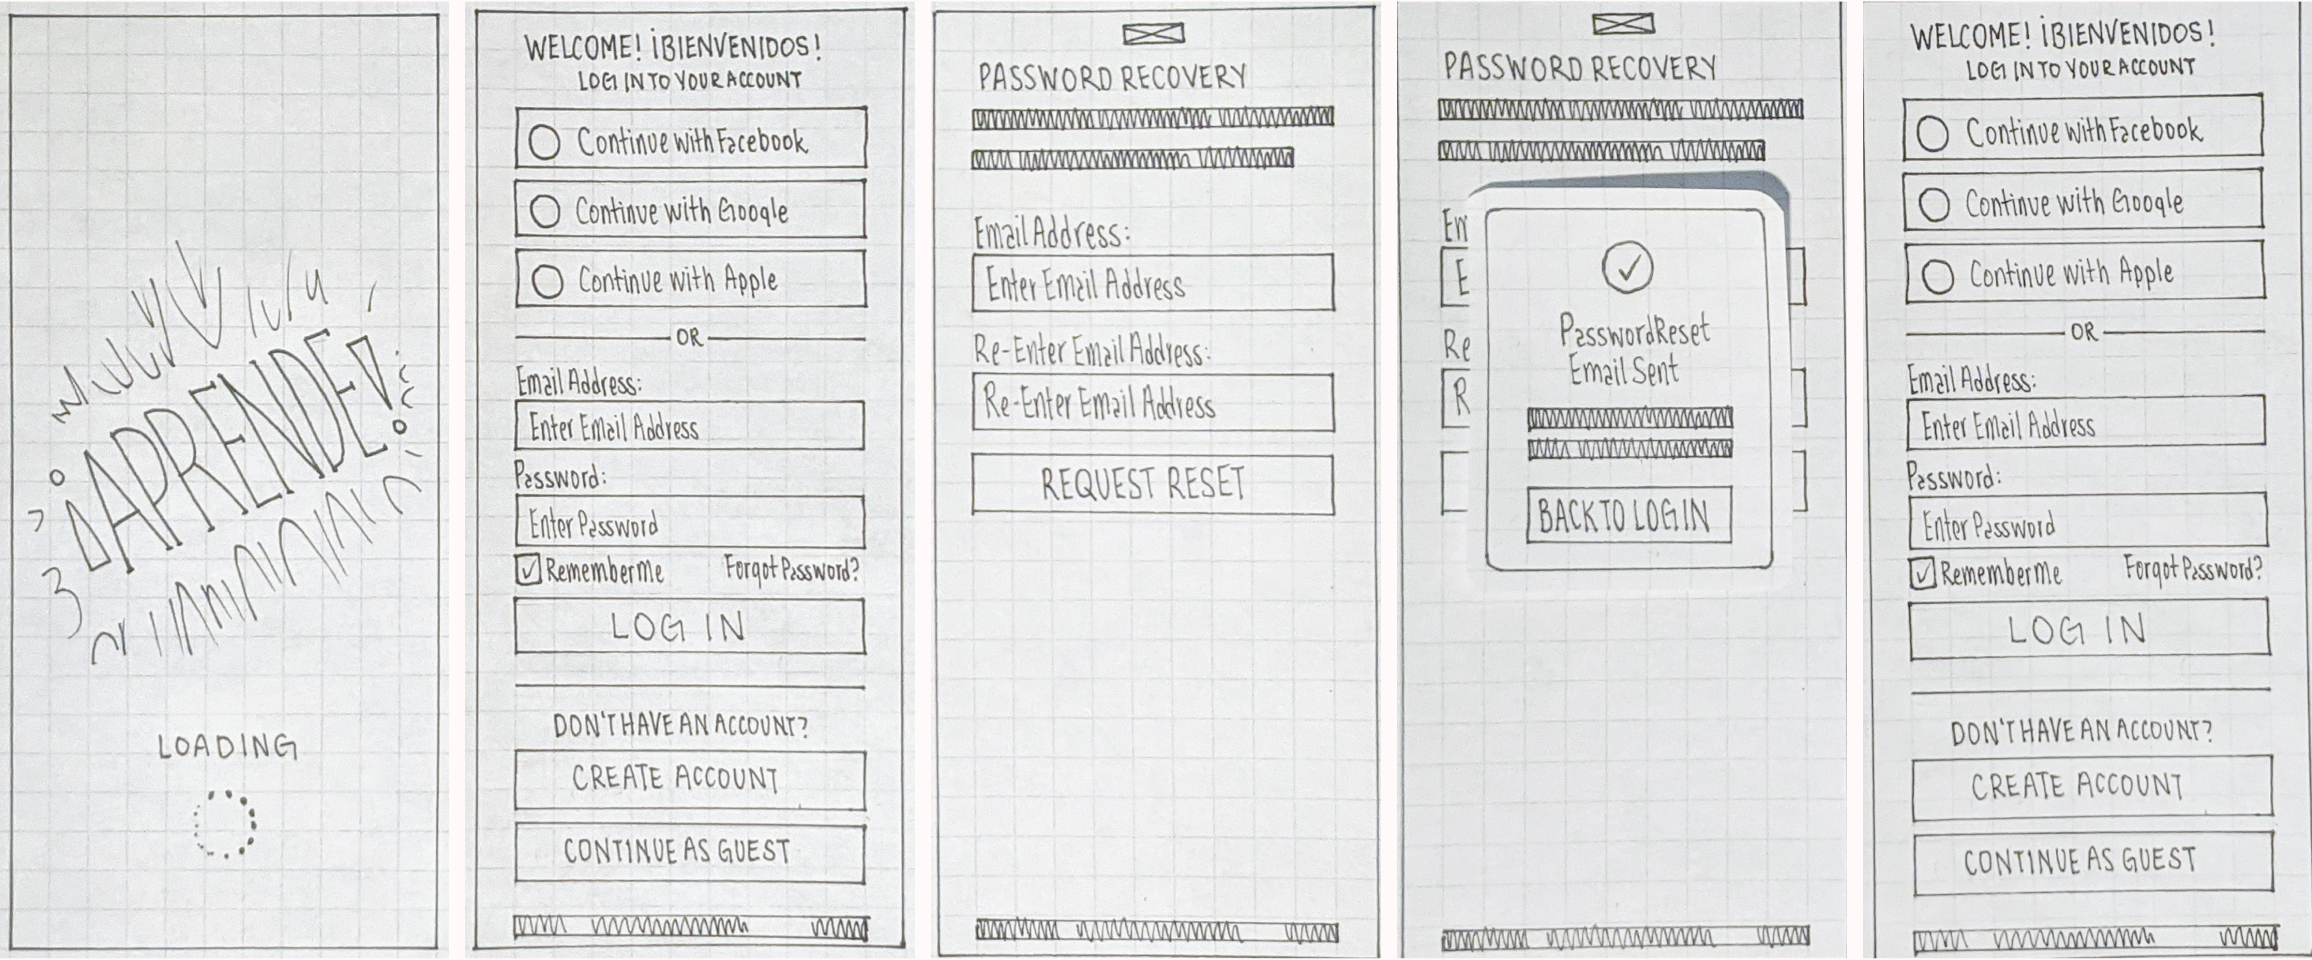 ¡APRENDE!
LOADING
WELCOME! ¡BIENVENIDOS!
LOG IN TO YOUR ACCOUNT
Continue with Facebook
Continue with Google
Continue with Apple
OR
Email Address:
Enter Email Address
Password:
Enter Password
Remember Me Forgot Password?
LOG IN
DON'T HAVE AN ACCOUNT?
CREATE ACCOUNT
CONTINUE AS GUEST
PASSWORD RECOVERY
Email Address:
Enter Email Address
Re-Enter Email Address:
Re-Enter Email Address
REQUEST RESET
PASSWORD RECOVERY
Em
E
Re
R
Password Reset
Email Sent
BACK TO LOG IN
WELCOME! ¡BIENVENIDOS!
LOG IN TO YOUR ACCOUNT
Continue with Facebook
Continue with Google
Continue with Apple
OR
Email Address:
Enter Email Address
Password:
Enter Password
Remember Me Forgot Password?
LOG IN
DON'T HAVE AN ACCOUNT?
CREATE ACCOUNT
CONTINUE AS GUEST